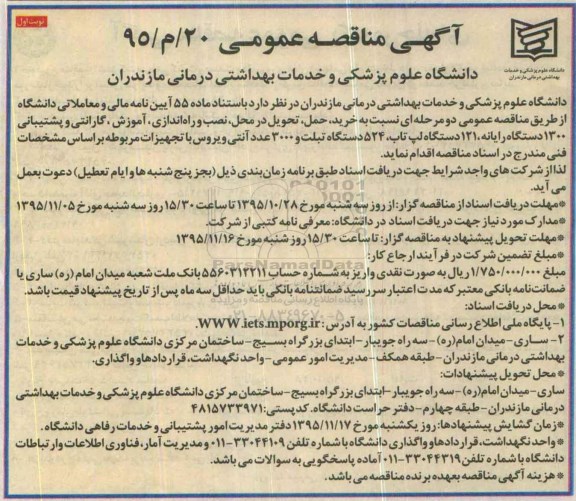 نوبت اول
آگهی مناقصه عمومی ۲۰/م/۹۵
دانشگاه علوم پزشکی و خدمات بهداشتی درمانی مازندران
دانشگاه علوم پزشکی و خدمات بهداشتی درمانی مازندران
دانشگاه علوم پزشکی و خدمات بهداشتی درمانی مازندران در نظر دارد باستناد ماده ۵۵ آیین نامه مالی و معاملاتی دانشگاه
از طریق مناقصه عمومی دو مرحله ای نسبت به خرید، حمل، تحویل در محل، نصب و راه اندازی، آموزش، گارانتی و پشتیبانی
۱۳۰۰ دستگاه رایانه، ۱۲۱ دستگاه لپ تاپ، ۵۲۴ دستگاه تبلت و ۳۰۰۰ عدد آنتی ویروس با تجهیزات مربوطه بر اساس مشخصات
فنی مندرج در اسناد مناقصه اقدام نماید.
لذا از شرکت های واجد شرایط جهت دریافت اسناد طبق برنامه زمان بندی ذیل (بجز پنج شنبه ها و ایام تعطیل) دعوت بعمل
می آید.
*مهلت دریافت اسناد از مناقصه گزار: از روز سه شنبه مورخ ۱۳۹۵/۱۰/۲۸ تا ساعت ۱۵/۳۰ روز سه شنبه مورخ ۱۳۹۵/۱۱/۰۵
*مدارک مورد نیاز جهت دریافت اسناد در دانشگاه: معرفی نامه کتبی از شرکت.
*مهلت تحویل پیشنهاد به مناقصه گزار: تا ساعت ۱۵/۳۰ روز شنبه مورخ ۱۳۹۵/۱۱/۱۶
*مبلغ تضمین شرکت در فرآیند ارجاع کار:
مبلغ ۱/۷۵۰/۰۰۰/۰۰۰ ریال به صورت نقدی واریز به شماره حساب ۵۵۶۰۳۱۲۲۱۱ بانک ملت شعبه میدان امام (ره) ساری یا
ضمانت نامه بانکی معتبر که مدت اعتبار سررسید ضمانتنامه بانکی باید حداقل سه ماه پس از تاریخ پیشنهاد قیمت باشد.
*محل دریافت اسناد:
۱- پایگاه ملی اطلاع رسانی مناقصات کشور به آدرس: WWW.iets.mporg.ir
۲- ساری-میدان امام(ره)-سه راه جویبار-ابتدای بزرگراه بسیج-ساختمان مرکزی دانشگاه علوم پزشکی و خدمات
بهداشتی درمانی مازندران-طبقه همکف-مدیریت امور عمومی-واحد نگهداشت، قراردادها و واگذاری.
*محل تحویل پیشنهادات:
ساری-میدان امام(ره)-سه راه جویبار-ابتدای بزرگراه بسیج-ساختمان مرکزی دانشگاه علوم پزشکی و خدمات بهداشتی
درمانی مازندران-طبقه چهارم-دفتر حراست دانشگاه. کدپستی: ۴۸۱۵۷۳۳۹۷۱
*زمان گشایش پیشنهادها: روز یکشنبه مورخ ۱۳۹۵/۱۱/۱۷ دفتر مدیریت امور پشتیبانی و خدمات رفاهی دانشگاه.
*واحد نگهداشت، قراردادها و واگذاری دانشگاه با شماره تلفن ۳۳۰۴۴۱۰۹-۰۱۱ و مدیریت آمار، فناوری اطلاعات و ارتباطات
دانشگاه با شماره تلفن ۳۳۰۴۴۳۱۹-۰۱۱ آماده پاسخگویی به سوالات می باشد.
*هزینه آگهی مناقصه بعهده برنده مناقصه می باشد.
ParsNamadData
پایگاه اطلاع رسانی مناقصه و مزایده
۰۲۱-۸۸۳۴۹۶۷۰-۵